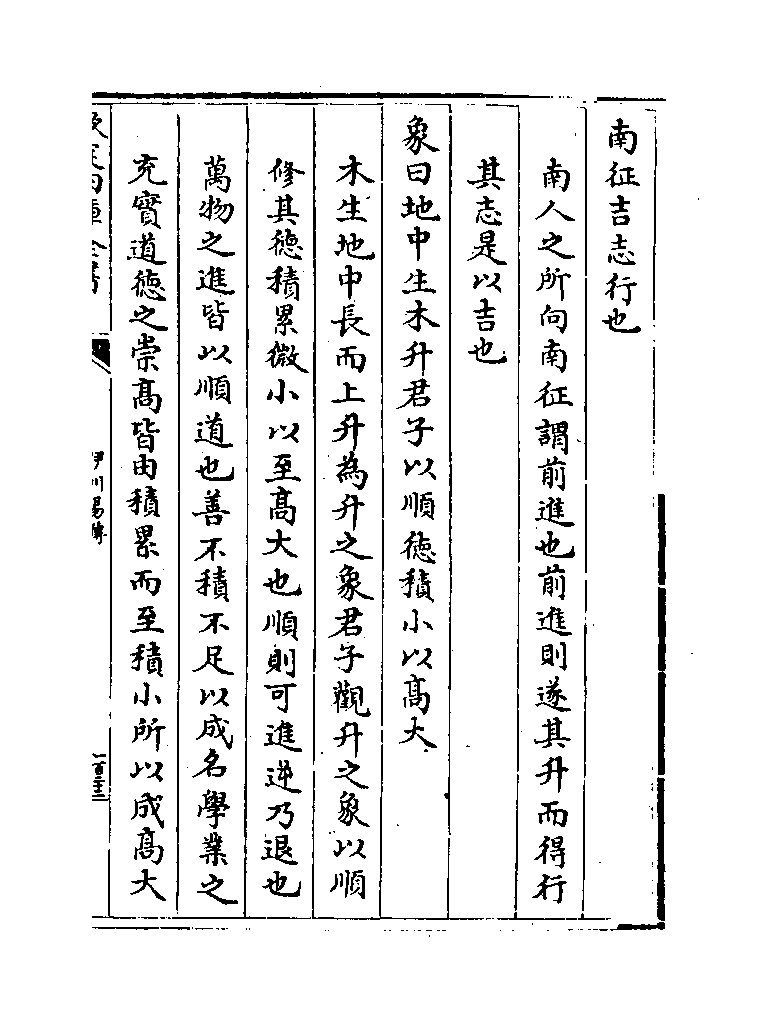 南征吉志行也
南人之所向南征謂前進也前進則遂其升而得行
其志是以吉也
象曰地中生木升君子以順德積小以髙大
木生地中長而上升為升之象君子觀升之象以順
修其德積累微小以至髙大也順則可進逆乃退也
萬物之進皆以順道也善不積不足以成名學業之
充實道德之崇髙皆由積累而至積小所以成髙大
欽定四庫全書
伊川易傳